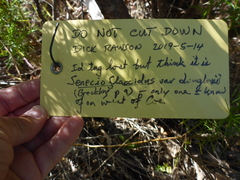 DO NOT CUT DOWN
DICK RAWSON 2019-5-14
I'd tag lost but think it is
Senecio flaccidus var douglasii
only one I know
of on west of Cre